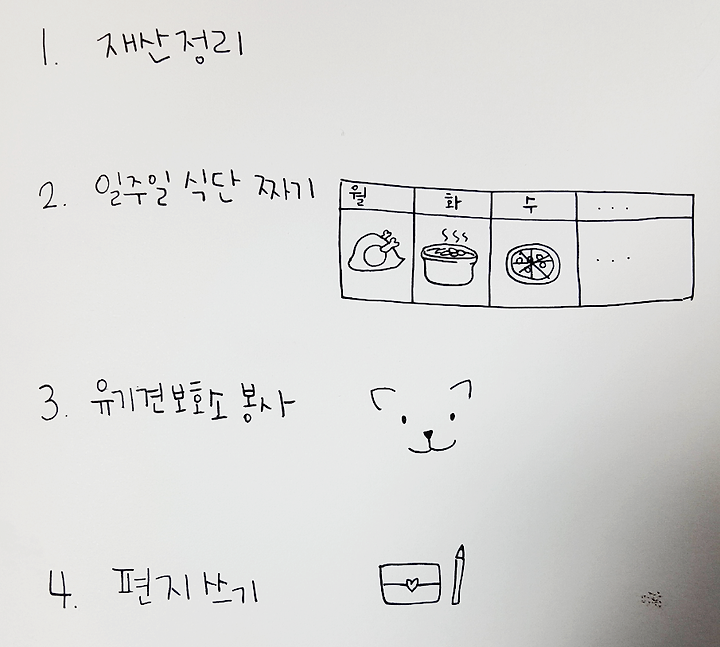 1. 재산정리
2. 일주일 식단 짜기
월 화 수 ...
...
3. 유기견보호소 봉사
4. 편지쓰기